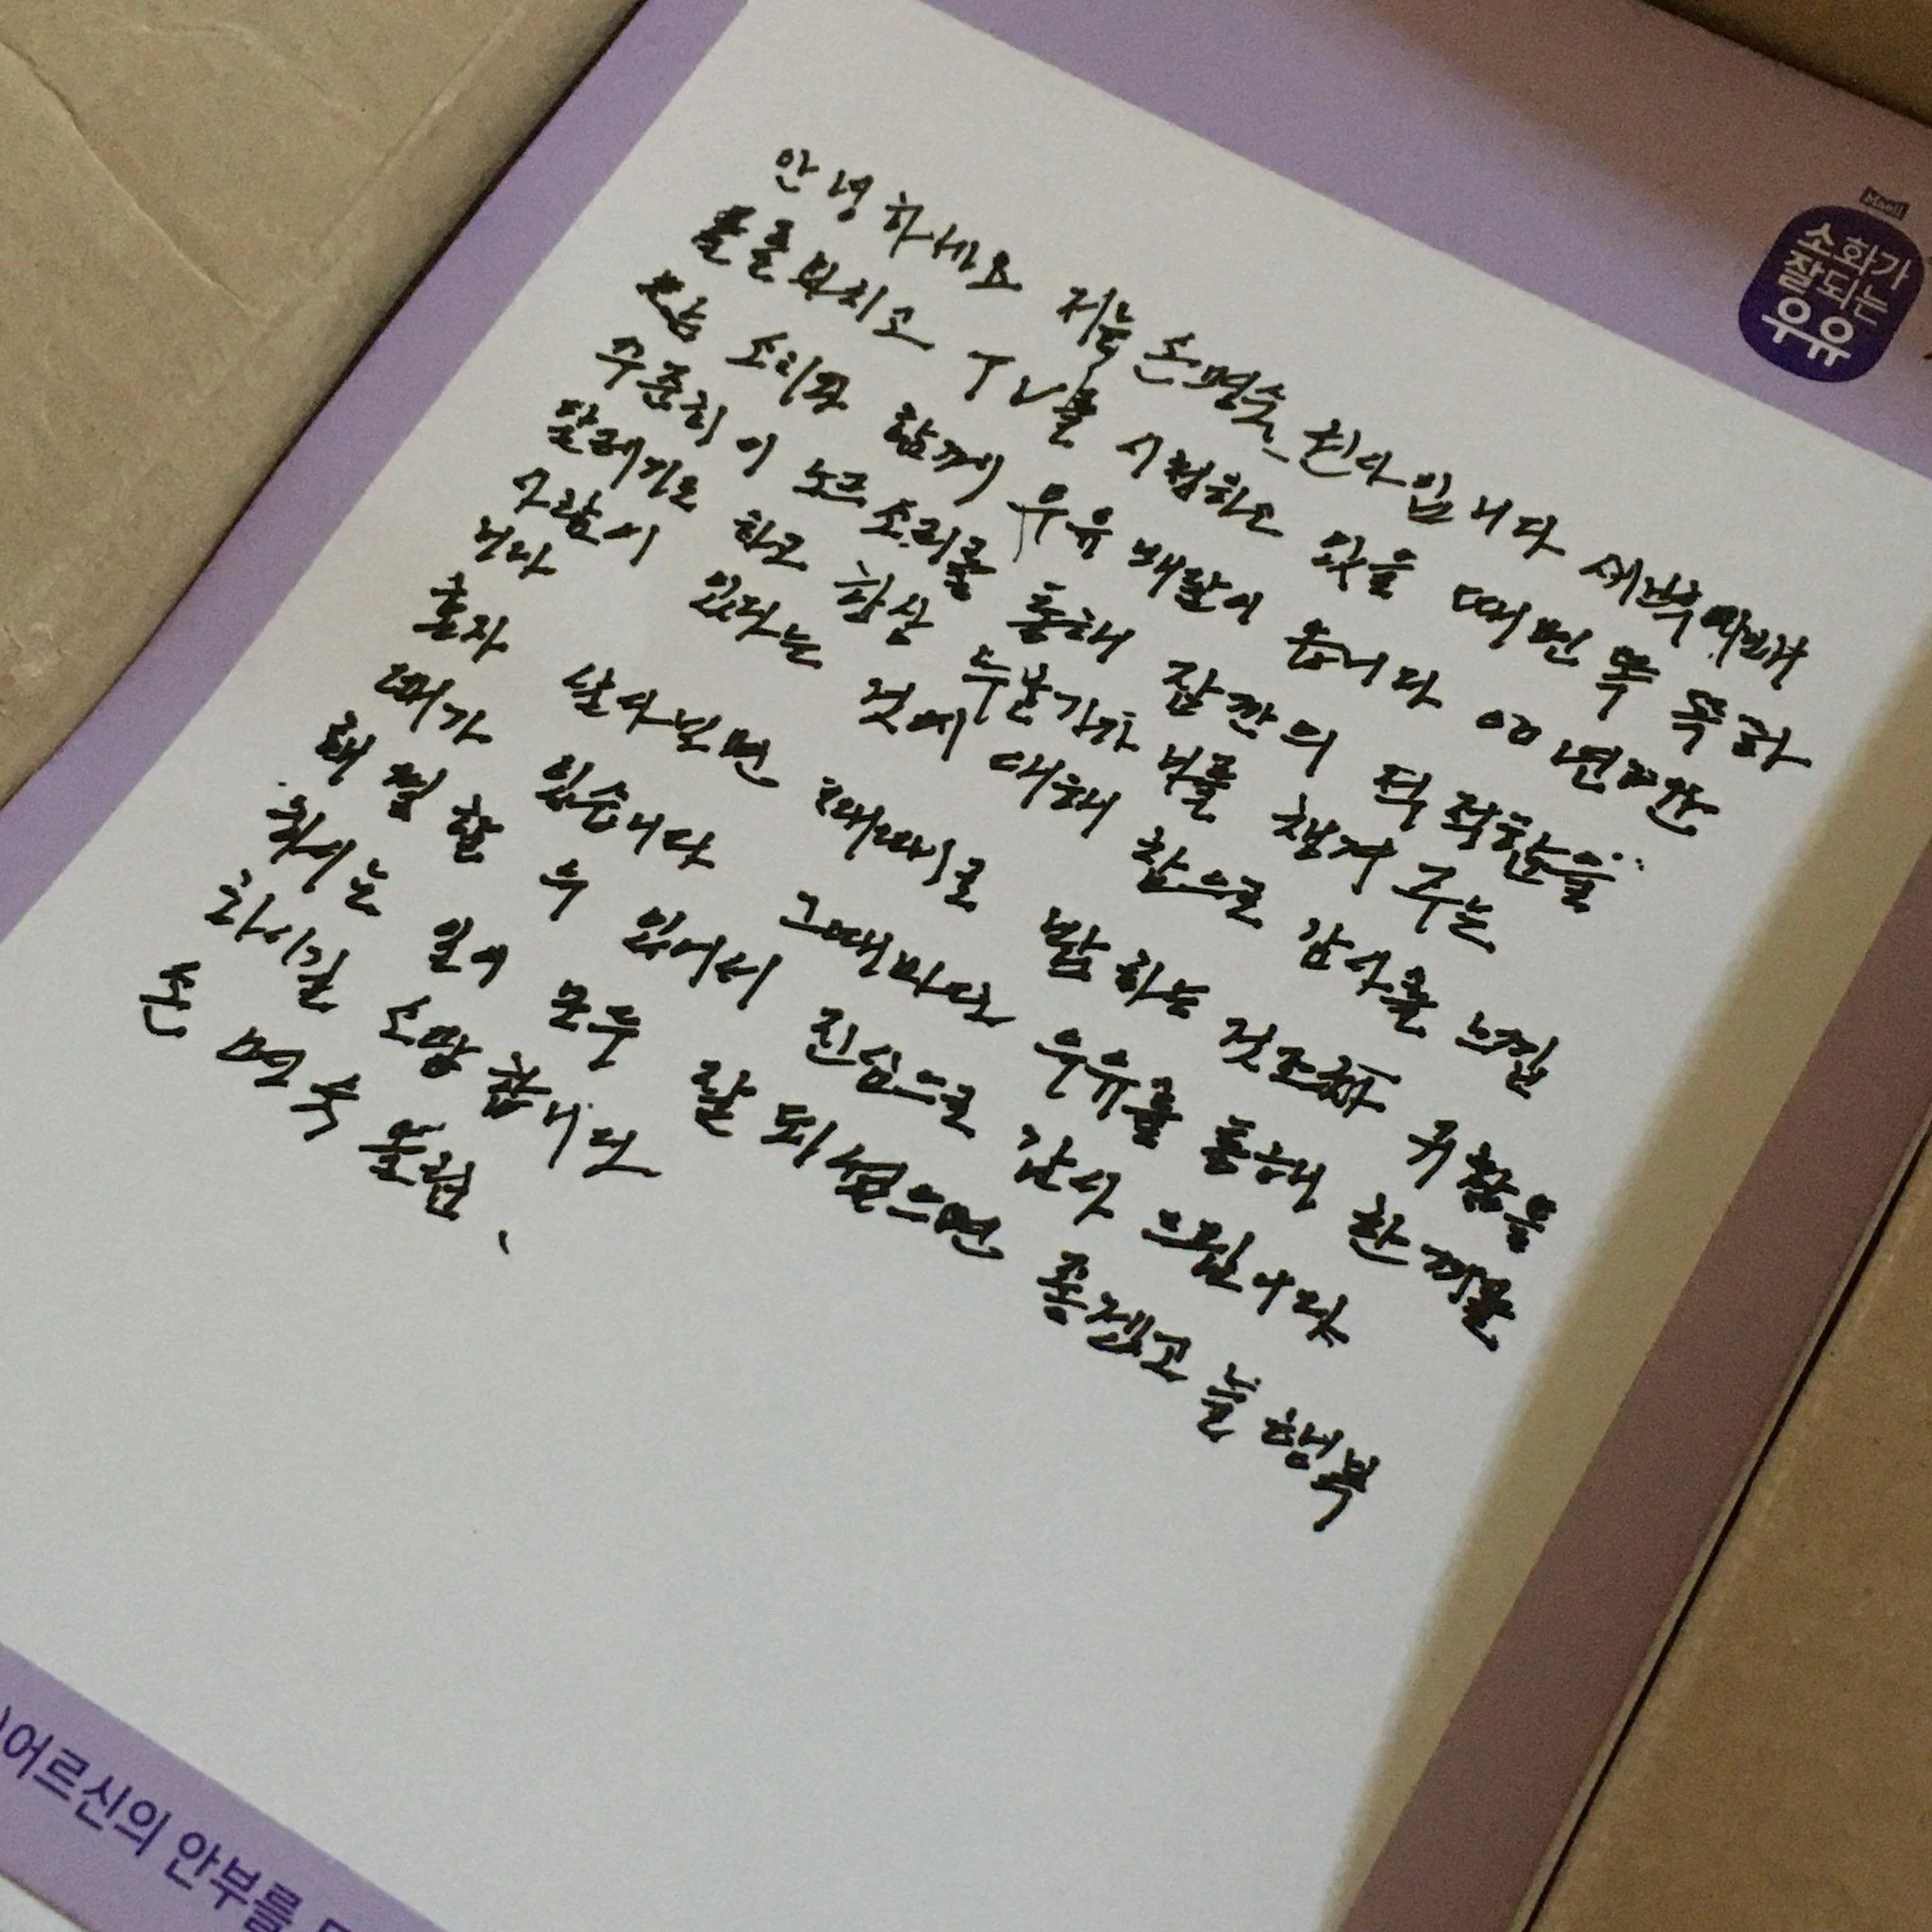 Maeil
소화가
잘되는
우유
안녕하세요 저는 손명숙 친다입니다 새벽마다
불을 켜시고 TV를 시청하고 있을 때면 똑 똑 하
는 소리와 함께 우유 배달이 옵니다 00년간
꾸준히 이 노크 소리를 통해 잠깐의 적적함을
달래기도 하고 항상 누군가가 나를 챙겨 주는
사람이 있다는 것에 대해 참으로 감사를 느낍
니다
혼자 살다보면 때때로 밥 하는 것조차 귀찮을
때가 있습니다 그때마다 우유를 통해 한끼를
해결할 수 있어서 진심으로 감사 드립니다
하시는 일이 모두 잘 되셨으면 좋겠고 늘 행복
하시길 소망 합니다
손 명 숙 올림.
어르신의 안부를